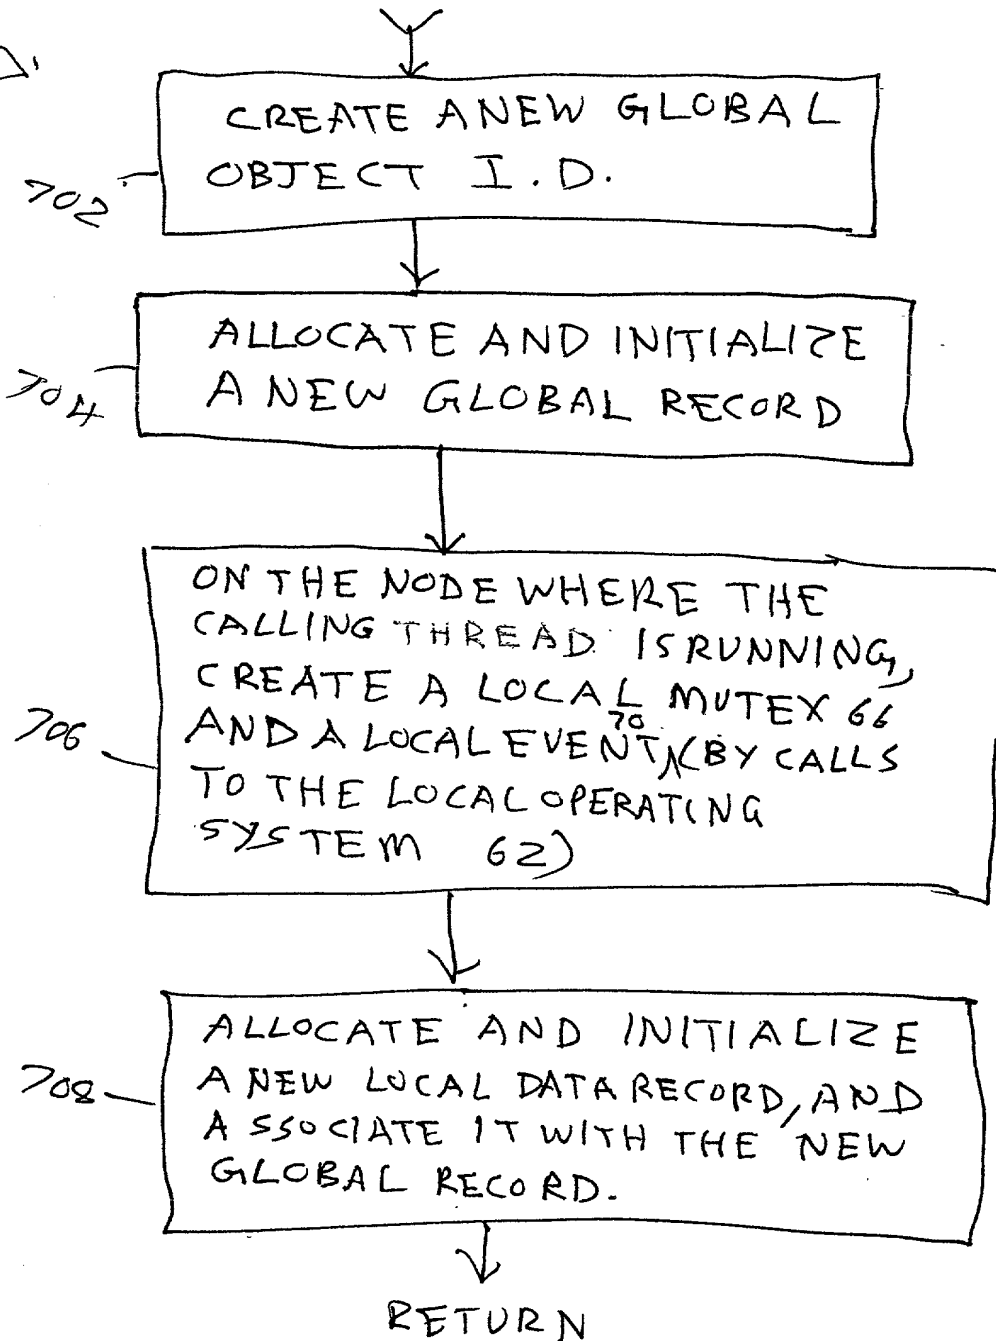 CREATE A NEW GLOBAL
OBJECT I.D.
702
ALLOCATE AND INITIALIZE
A NEW GLOBAL RECORD
704
ON THE NODE WHERE THE
CALLING THREAD IS RUNNING,
CREATE A LOCAL MUTEX 66
AND A LOCAL EVENT 70 (BY CALLS
TO THE LOCAL OPERATING
SYSTEM 62)
706
ALLOCATE AND INITIALIZE
A NEW LOCAL DATA RECORD, AND
ASSOCIATE IT WITH THE NEW
GLOBAL RECORD.
708
RETURN